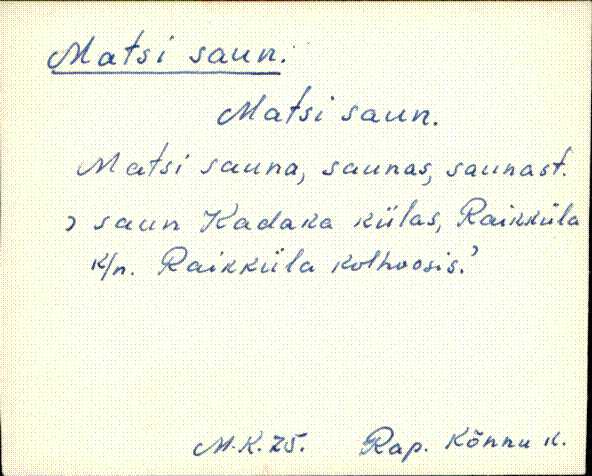 Matsi saun.
Matsi saun.
Matsi sauna, saunas, saunast.
, saun Kadaka külas, Raikküla
k/n. Raikküla kolhoosis.'
M.K. 25. Rap. Kõnnu k.